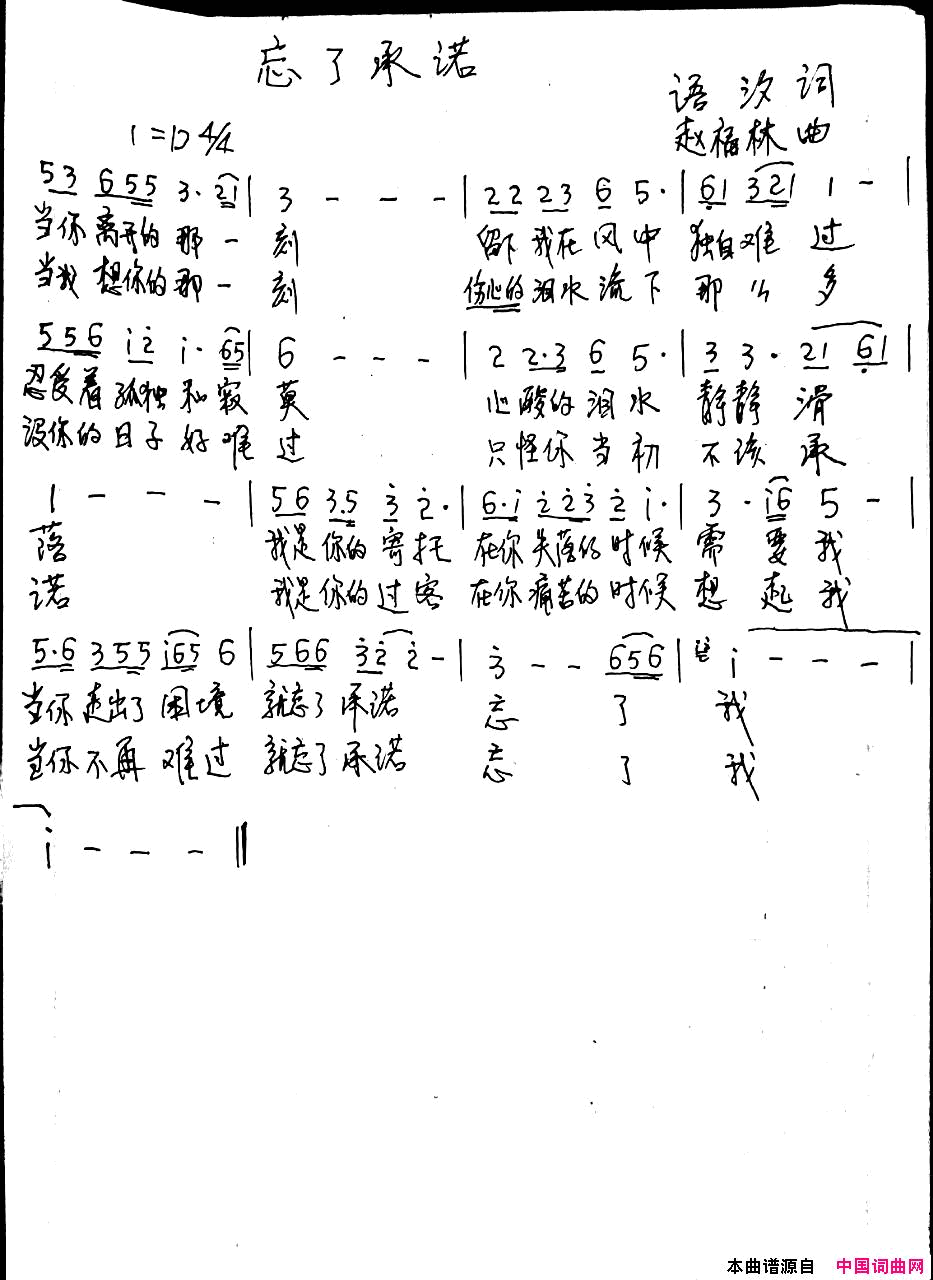 忘了承诺
语汐词
1=D 4/4
赵福林曲
53 655 3· 21 | 3 - - - | 22 23 6 5· | 61 321 1 - |
当你离开的那一刻 留下我在风中 独自难过
当我想你的那一刻 伤心的泪水流下 那么多
556 i2 i· 65 | 6 - - - | 2 2·3 6 5· | 3 3· 21 61 |
忍受着孤独和寂莫 心酸的泪水 静静滑
没你的日子好难过 只怪你当初 不该承
1 - - - | 56 3·5 3 2· | 6·i 223 2 i· | 3· i6 5 - |
落 我是你的寄托 在你失落的时候 需要我
诺 我是你的过客 在你痛苦的时候 想起我
5·6 355 i65 6 | 566 32 2 - | 3 - - 656 | i - - - |
当你走出了困境 就忘了承诺 忘了我
当你不再难过 就忘了承诺 忘了我
i - - - ‖
本曲谱源自 中国词曲网